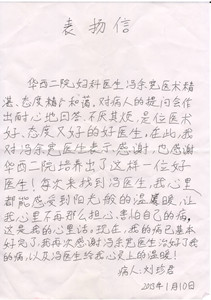 表扬信
华西二院妇科医生冯余宽医术精
湛、态度和蔼,对病人的提问会作
出耐心地回答、不厌其烦,是位医术
好、态度又好的好医生,在此,我
对冯余宽医生表示感谢,也感谢
华西二院培养出了这样一位好
医生!每次来找到冯医生,我心里
都能感受到阳光般的温暖,让
我心里不再那么担心、害怕自己的病,
这是我的心里话,现在,我的病已基本
好完了,我再次感谢冯余宽医生治好了我
的病,以及冯医生给我心灵上的温暖!
病人:刘珍君
2013年1月10日